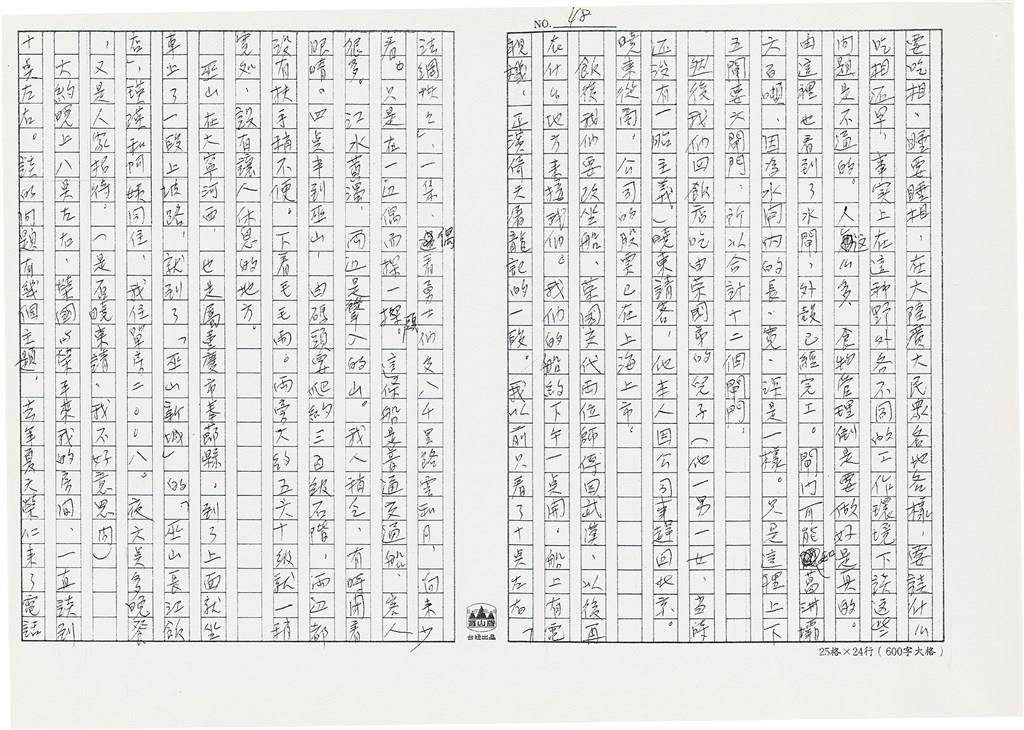 NO. 48
要吃相、睡要睡相，在大陸廣大民眾各地各樣，要談什么
吃相还早，事实上在這种野外各不同的工作環境下談這些
问题是不通的。人這么多，食物管理倒是要做好是真的。
由這裡也看到了水閘，外設已經完工。閘门可能和葛洲壩
六百噸，因為水向内的長、寬、深是一樣。只是這裡上下
五閘要六閘門，所以合計十二個閘門。
然後我們回飯店吃由榮國弟的兒子（他一男一女，当時
还沒有一胎主義）曉東請客，他本人因公司事錯回北京。
曉東從商。公司的股票已在上海上市。
飲後我们要改坐船，榮國交代兩位師傅回武漢，以後再
在什么地方來接我们。我们的船約下午一点開。船上有電
視機，正演倚天屠龍記的一段。我以前只看了十吳左右，
法網恢々，一集，偶看勇士们
看，只是在一边偶而探一探頭。這條船是普通交通船，客人
很多。江水黃濁，兩边是聳入的山。我人稍仝，有時閉着
眼睛。四点半到巫山，由碼頭要爬約三百級石階，兩边都
沒有扶手稍不便。下着毛毛雨。兩旁大約五六十級就一稍
寬处，設有讓人休息的地方。
巫山在大寧河西，也是屬重慶市奉節縣。到了上面就坐
車上了一段上坡路，就到了「巫山新城」的「巫山長江飯
店」，瑛瑛和阿姨同住，我住單房二〇〇八。夜六吳多晚餐
，又是人家招待。（是否曉東請、我不好意思问）
大約晚上八吳左右，榮國的榮丰來我的房间，一直談到
十吳左右。談的问題有幾個主題，去年夏天榮仁來了電話
25格×24行（600字大格）